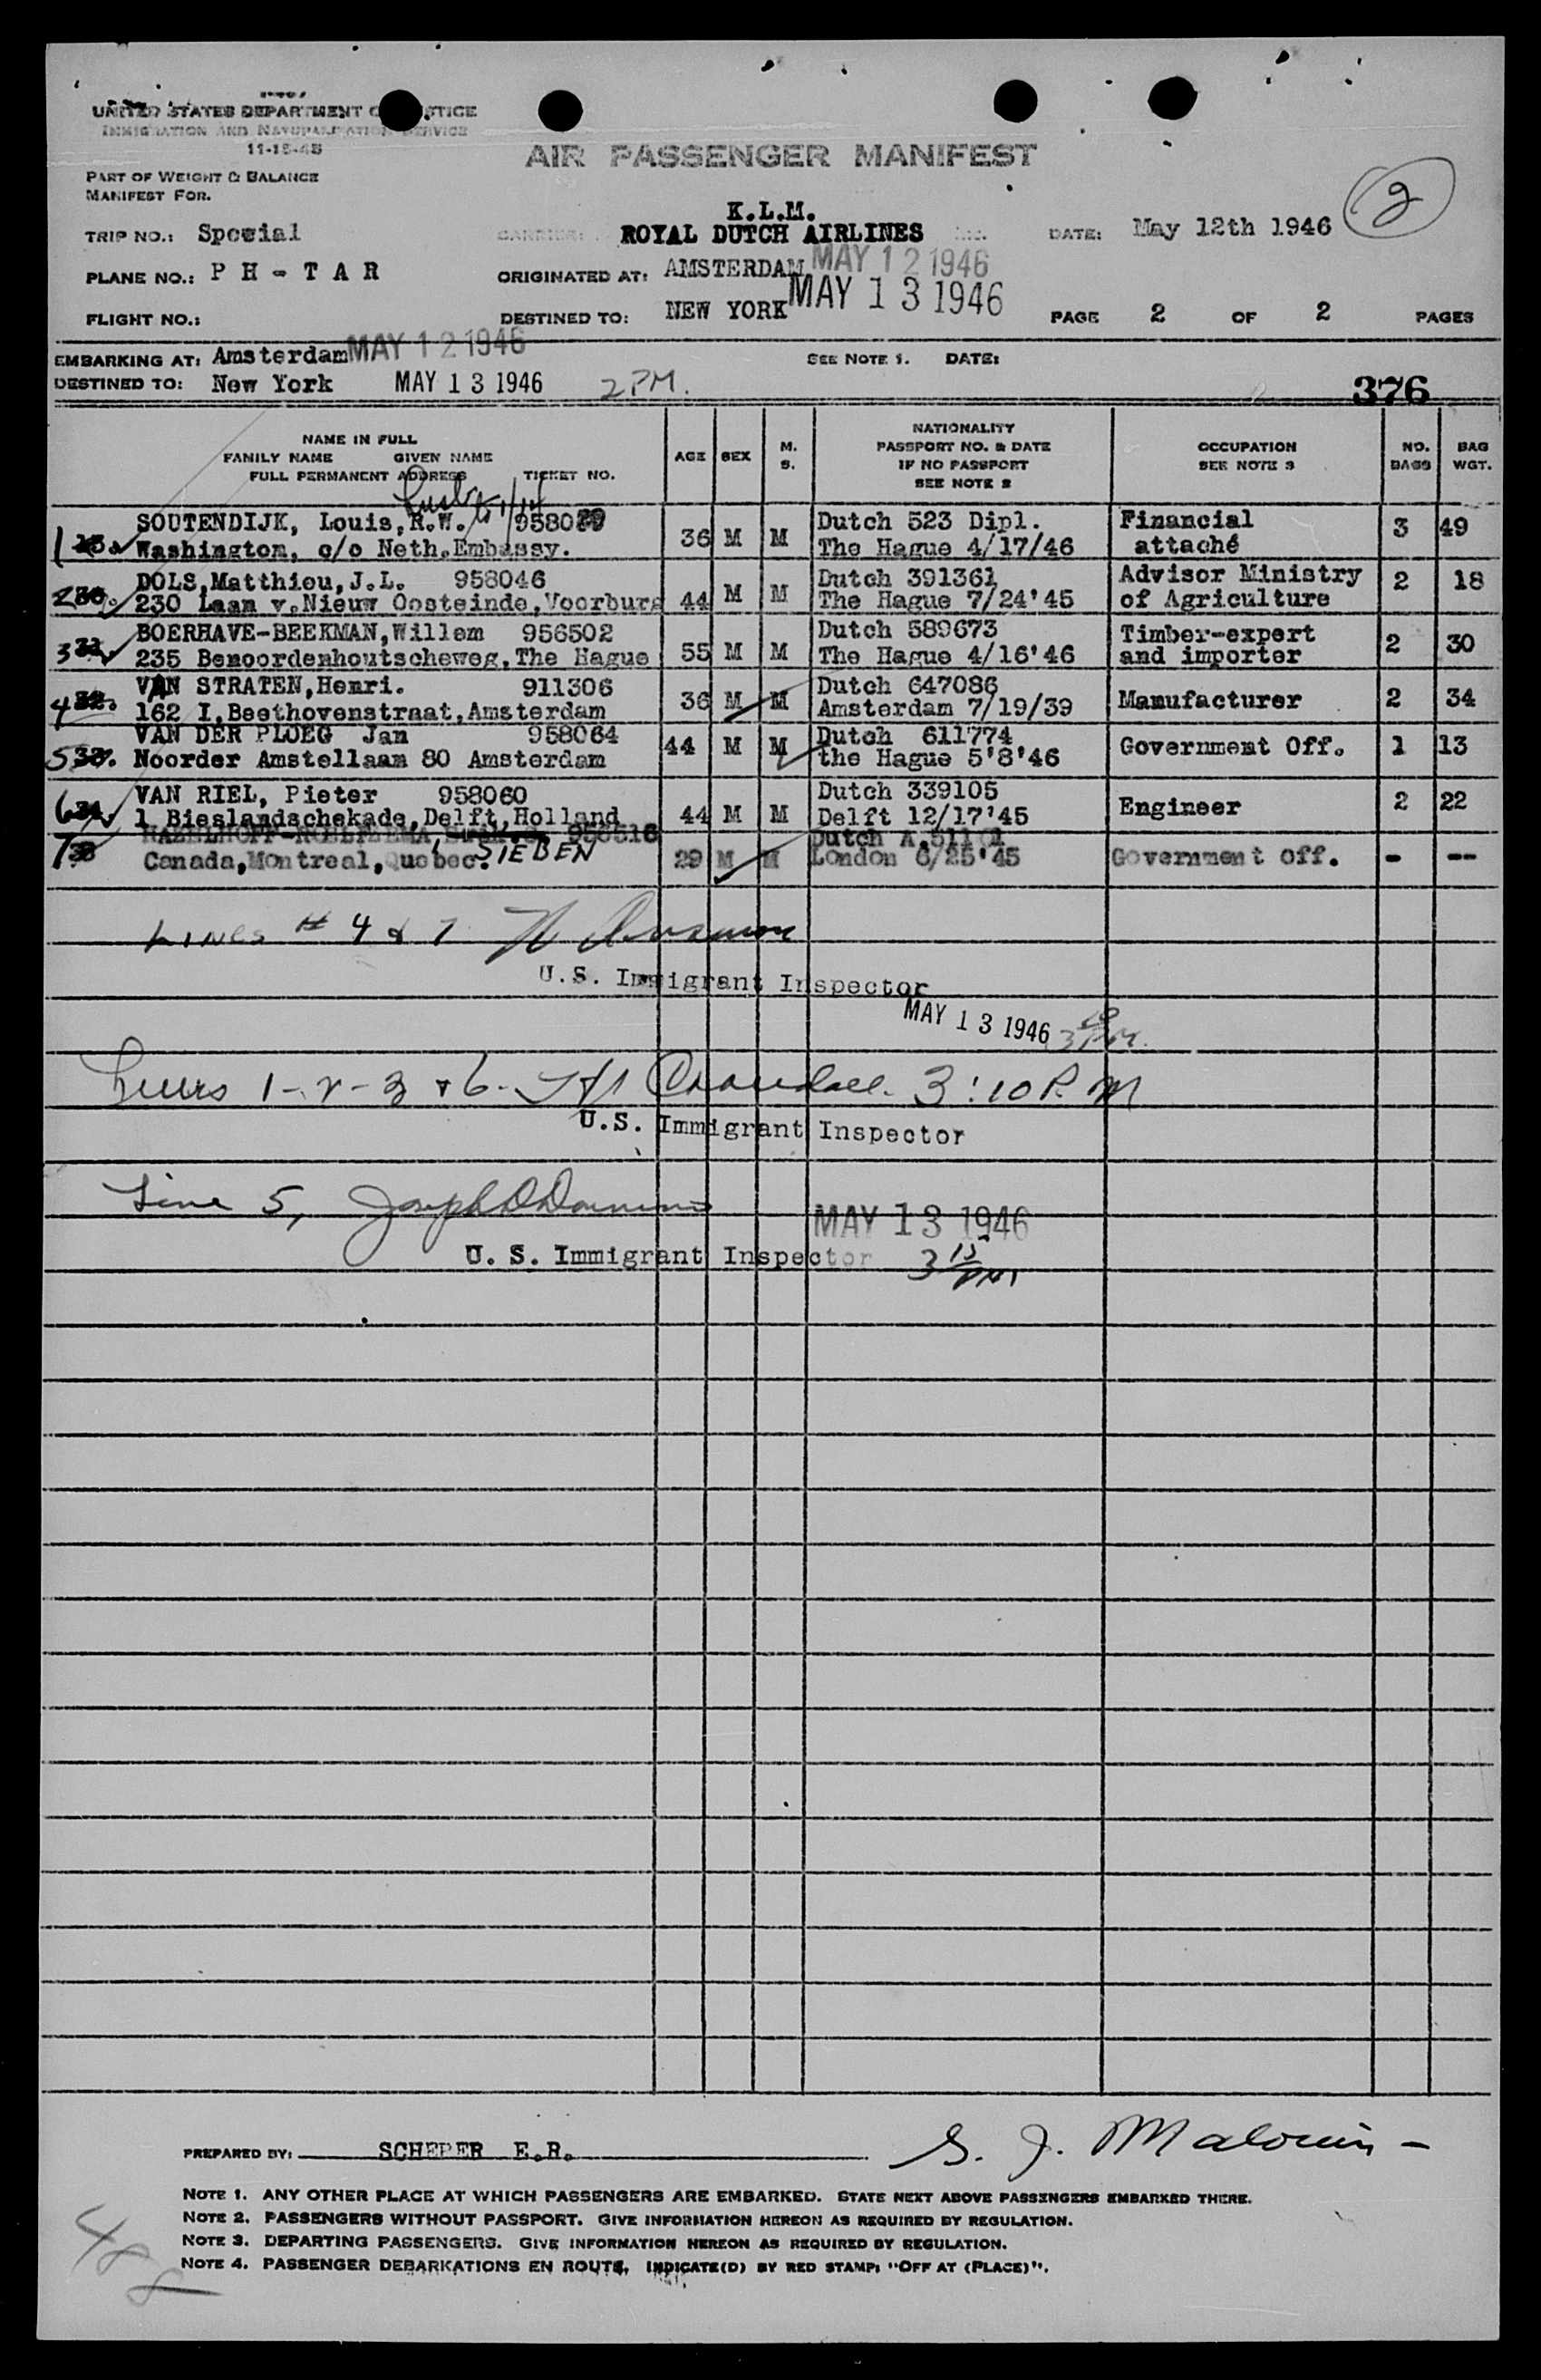 UNITED STATES DEPARTMENT OF JUSTICE
IMMIGRATION AND NATURALIZATION SERVICE
11-15-45
AIR PASSENGER MANIFEST
PART OF WEIGHT & BALANCE
MANIFEST FOR.
2
K.L.M.
TRIP NO.: Special
CARRIER: ROYAL DUTCH AIRLINES INC.
DATE: May 12th 1946
PLANE NO.: P H - T A R
ORIGINATED AT: AMSTERDAM MAY 12 1946
FLIGHT NO.:
DESTINED TO: NEW YORK MAY 13 1946
PAGE 2 OF 2 PAGES
EMBARKING AT: Amsterdam MAY 12 1946
SEE NOTE 1. DATE:
DESTINED TO: New York MAY 13 1946 2 PM.
376
NAME IN FULL
FAMILY NAME GIVEN NAME
FULL PERMANENT ADDRESS TICKET NO.
AGE SEX M. S.
NATIONALITY
PASSPORT NO. & DATE
IF NO PASSPORT
SEE NOTE 2
OCCUPATION
SEE NOTE 3
NO. BAGS
BAG WGT.
1 SOUTENDIJK, Louis, R.W. Dutch 523 Dipl. Financial
Washington, c/o Neth.Embassy. 36 M M The Hague 4/17/46 attaché 3 49
2 DOLS, Matthieu, J.L. 958046 Dutch 391361 Advisor Ministry
230 Laan v.Nieuw Oosteinde, Voorburg 44 M M The Hague 7/24'45 of Agriculture 2 18
3 BOERHAVE-BEEKMAN, Willem 956502 Dutch 589673 Timber-expert
235 Benoordenhoutscheweg, The Hague 55 M M The Hague 4/16'46 and importer 2 30
4 VAN STRATEN, Henri. 911306 Dutch 647086
162 I, Beethovenstraat, Amsterdam 36 M M Amsterdam 7/19/39 Manufacturer 2 34
5 VAN DER PLOEG Jan 958064 Dutch 611774
Noorder Amstellaan 80 Amsterdam 44 M M the Hague 5'8'46 Government Off. 1 13
6 VAN RIEL, Pieter 958060 Dutch 339105
1 Bieslandschekade, Delft, Holland 44 M M Delft 12/17'45 Engineer 2 22
7 958516 Dutch
Canada, Montreal, Quebec. SIEBEN 29 M M London 6/25'45 Government Off. - --
LINES # 4 & 7
U.S. Immigrant Inspector
MAY 13 1946
Lines 1-2-3 & 6- 3:10 P.M
U.S. Immigrant Inspector
Line 5,
MAY 13 1946
U. S. Immigrant Inspector 3 15 PM
PREPARED BY: SCHEPER E.R.
NOTE 1. ANY OTHER PLACE AT WHICH PASSENGERS ARE EMBARKED. STATE NEXT ABOVE PASSENGERS EMBARKED THERE.
NOTE 2. PASSENGERS WITHOUT PASSPORT. GIVE INFORMATION HEREON AS REQUIRED BY REGULATION.
NOTE 3. DEPARTING PASSENGERS. GIVE INFORMATION HEREON AS REQUIRED BY REGULATION.
NOTE 4. PASSENGER DEBARKATIONS EN ROUTE, INDICATE(D) BY RED STAMP: "OFF AT (PLACE)".